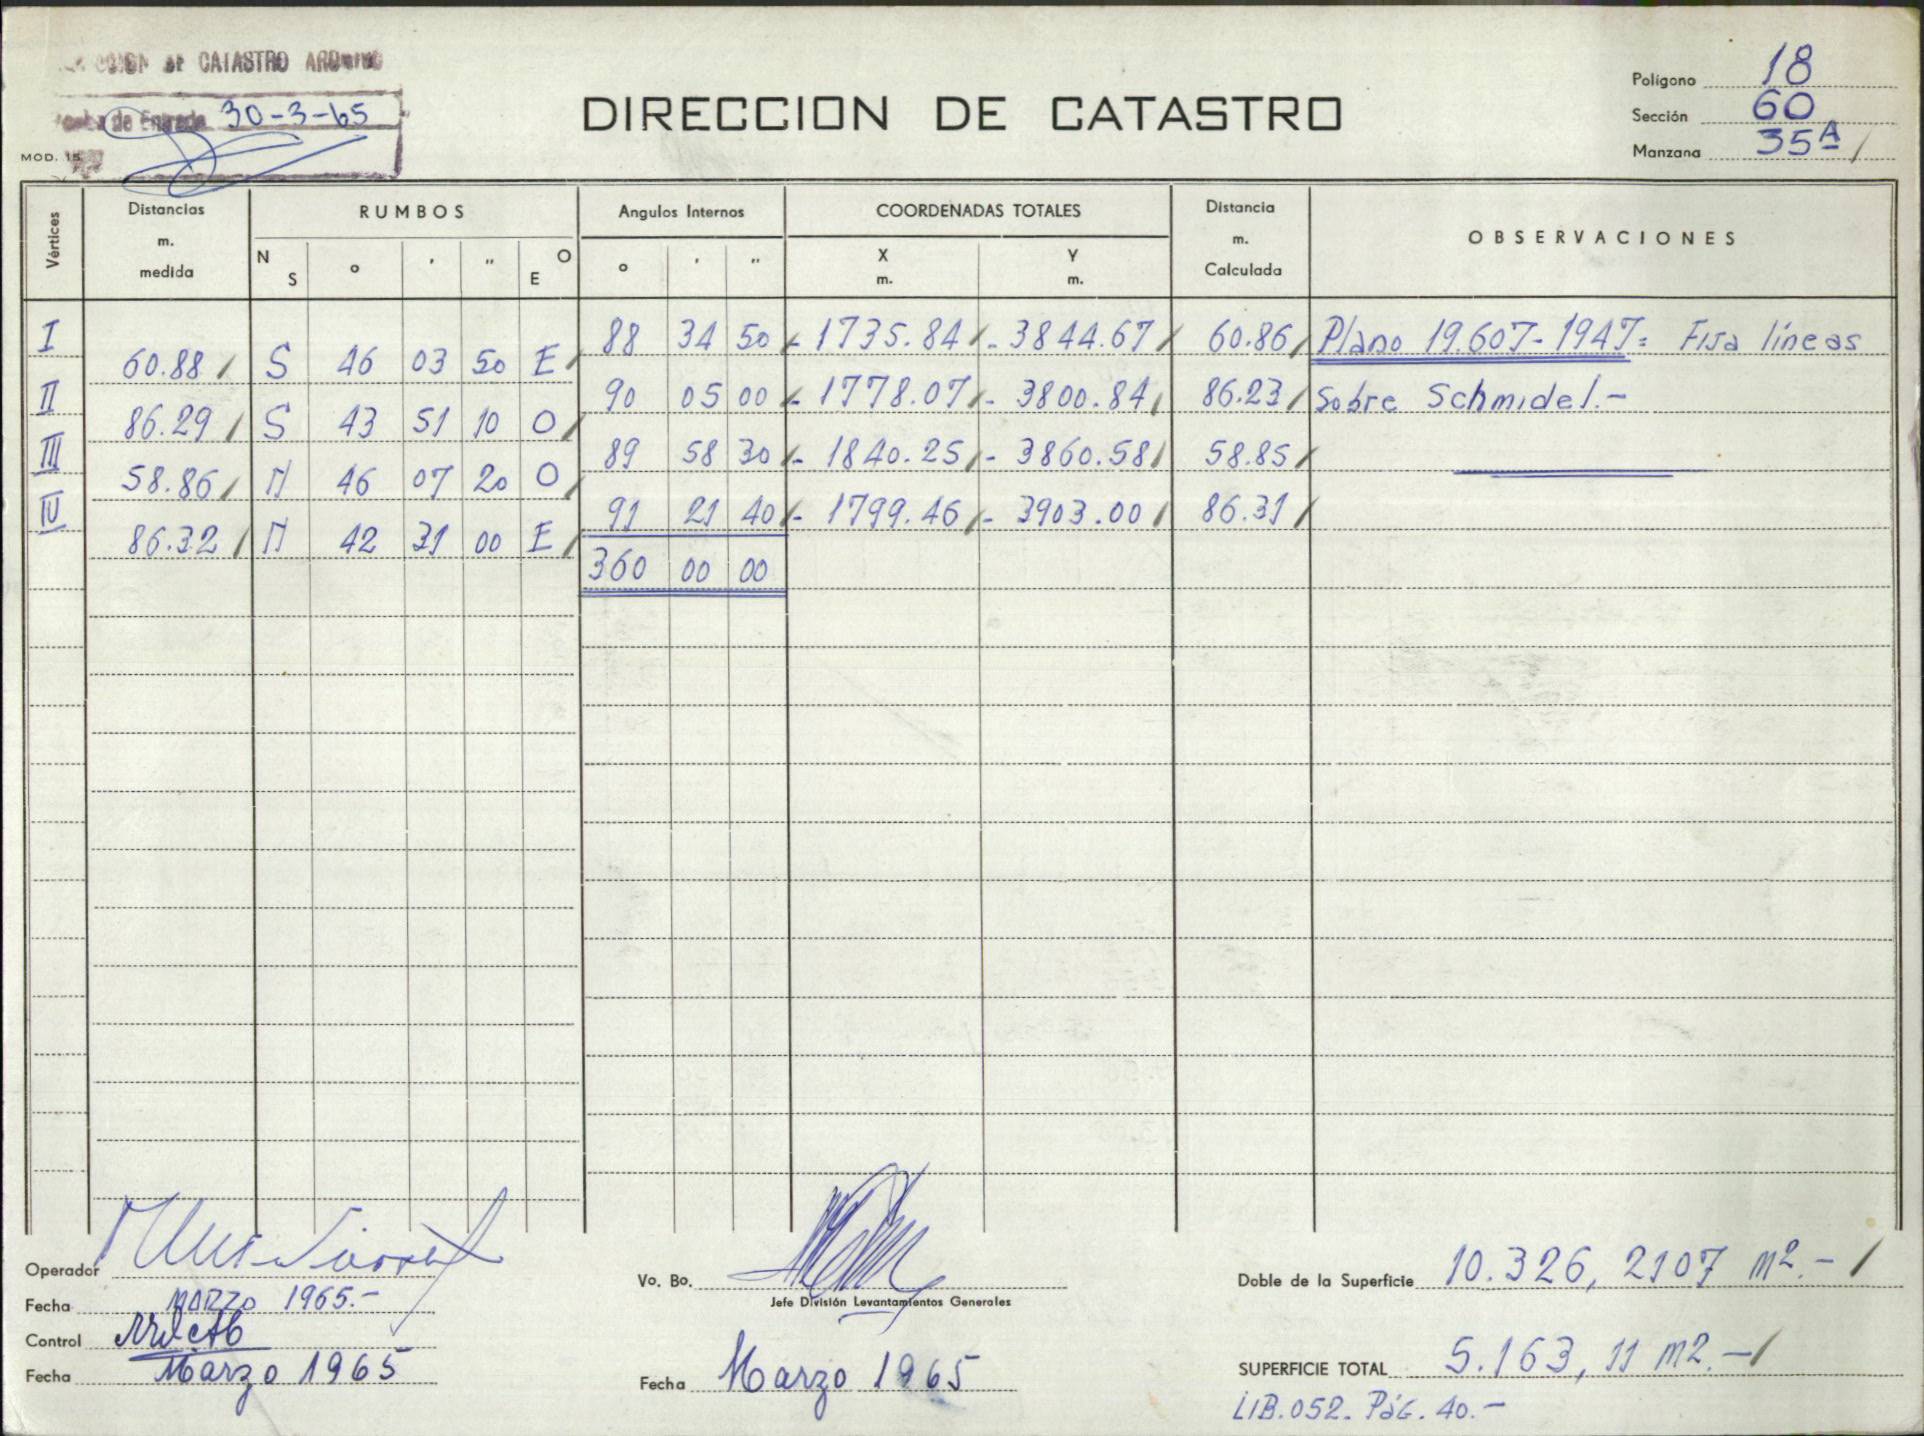 DE CATASTRO ARCHIVO
de Entrada 30-3-65
MOD. 15
DIRECCION DE CATASTRO
Polígono 18
Sección 60
Manzana 35A
Vértices
Distancias m. medida
RUMBOS
N S ° ' " O E
Angulos Internos
° ' "
COORDENADAS TOTALES
X m. Y m.
Distancia m. Calculada
OBSERVACIONES
I 88 34 50 - 1735.84 - 3844.67 60.86 Plano 19.607-1947= Fija líneas
60.88 S 46 03 50 E
II 90 05 00 - 1778.07 - 3800.84 86.23 Sobre Schmidel.-
86.29 S 43 51 10 O
III 89 58 30 - 1840.25 - 3860.58 58.85
58.86 N 46 07 20 O
IV 91 21 40 - 1799.46 - 3903.00 86.31
86.32 N 42 31 00 E
360 00 00
Operador
Fecha MARZO 1965.-
Control
Fecha Marzo 1965
Vo. Bo.
Jefe División Levantamientos Generales
Fecha Marzo 1965
Doble de la Superficie 10.326,2107 m2.-
SUPERFICIE TOTAL 5.163,11 m2.-
LIB.052. PáG. 40.-